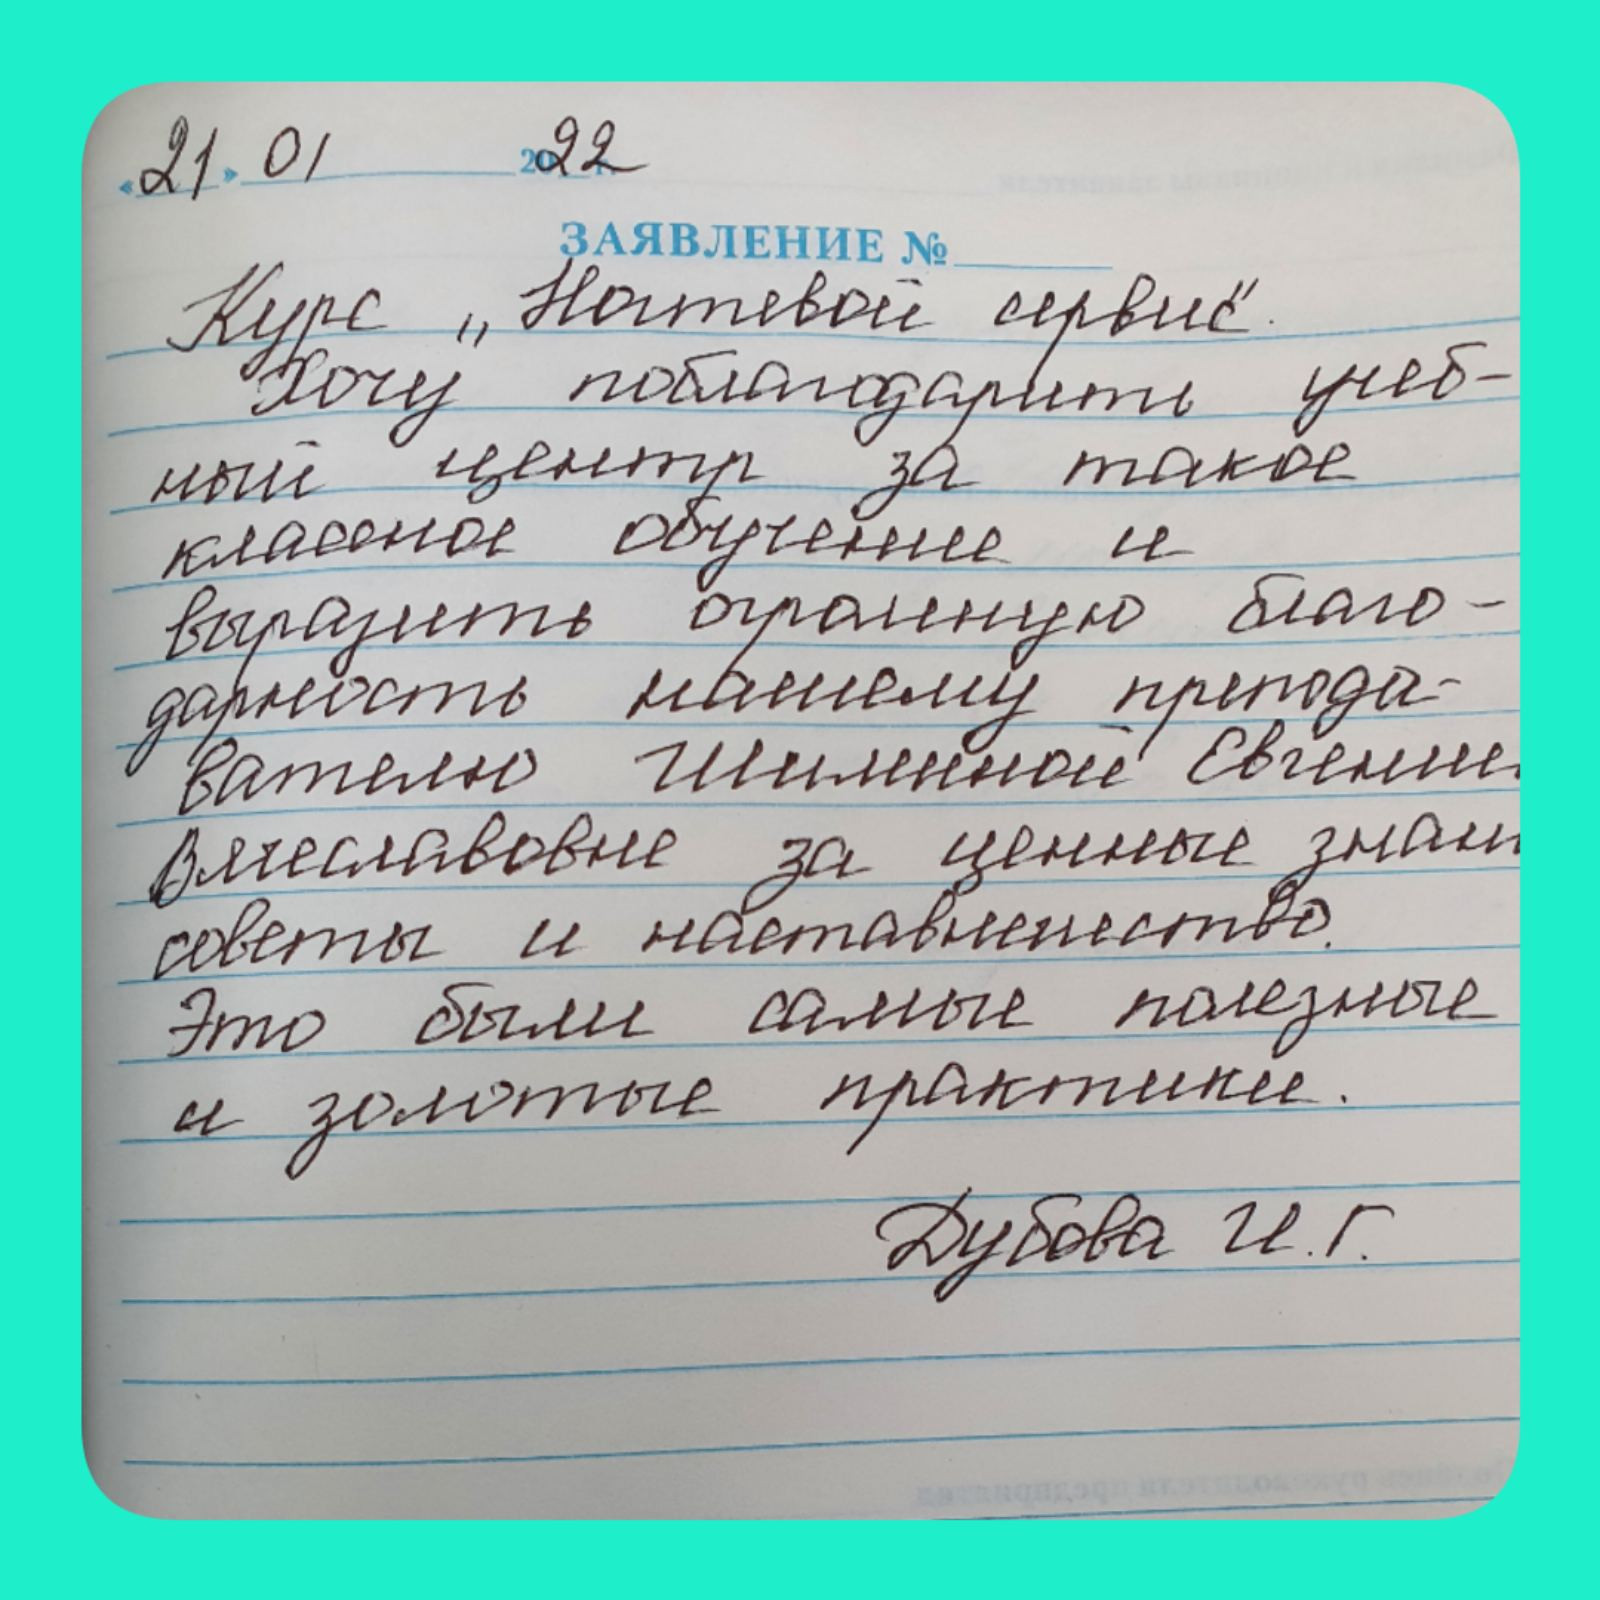 «21» 01 2022
ЗАЯВЛЕНИЕ №
Курс „Ногтевой сервис".
Хочу поблагодарить учеб-
ный центр за такое
классное обучение и
выразить огромную благо-
дарность нашему препода-
вателю Шиминой Евгении
Вячеславовне за ценные знан
советы и наставничество.
Это были самые полезные
и золотые практики.
Дубова И.Г.